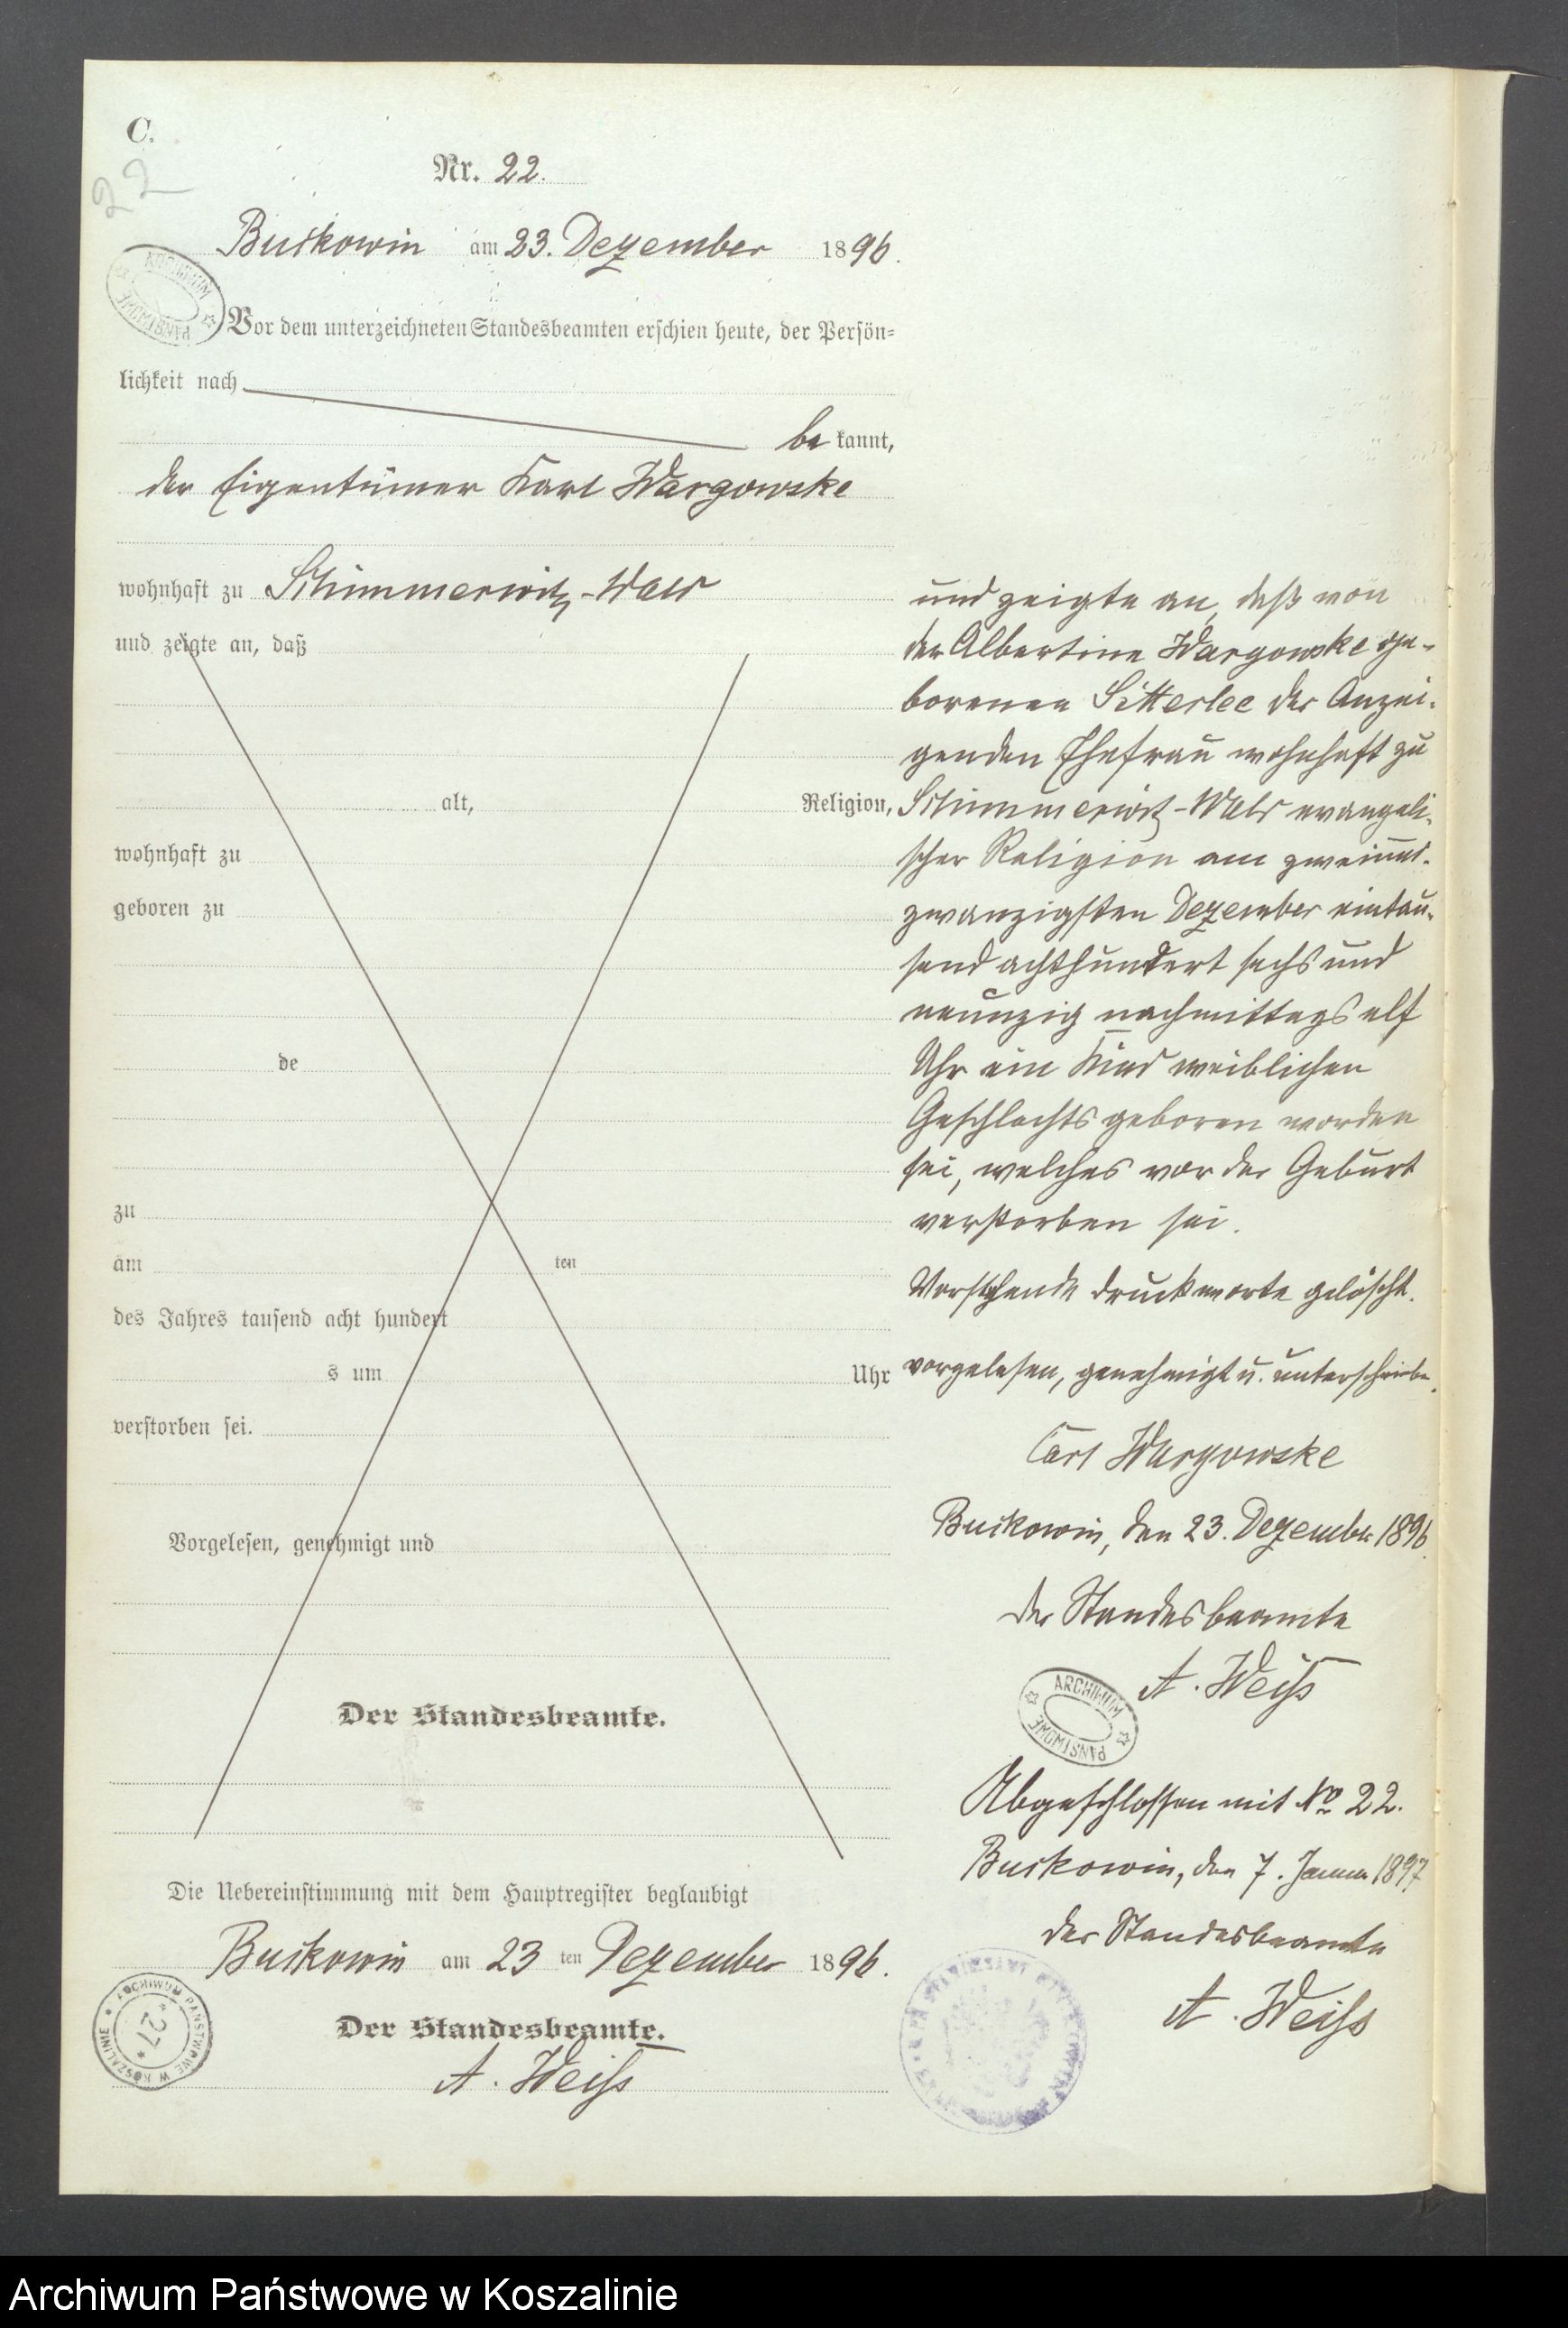 C.
22
Nr. 22.
Buckowin am 23. Dezember 1896.
ARCHIWUM PAŃSTWOWE
Vor dem unterzeichneten Standesbeamten erschien heute, der Persön-
lichkeit nach
be kannt,
der Eigentümer Karl Wargowske
wohnhaft zu Schimmerwitz-Wald
und zeigte an, daß
alt, Religion,
wohnhaft zu
geboren zu
de
zu
am ten
des Jahres tausend acht hundert
s um Uhr
verstorben sei.
Vorgelesen, genehmigt und
Der Standesbeamte.
Die Uebereinstimmung mit dem Hauptregister beglaubigt
Buckowin am 23 ten Dezember 1896.
Der Standesbeamte.
A. Weiß
ARCHIWUM PAŃSTWOWE W KOSZALINIE
* 27 *
und zeigte an, daß von
der Albertine Wargowske ge-
borenen Sitterlee der Anzei-
genden Ehefrau wohnhaft zu
Schimmerwitz-Wald evangeli-
scher Religion am zweiund-
zwanzigsten Dezember eintau-
send achthundert sechs und
neunzig nachmittags elf
Uhr ein Kind weiblichen
Geschlechts geboren worden
sei, welches vor der Geburt
verstorben sei.
Vorstehende Druckworte gelöscht.
vorgelesen, genehmigt u. unterschrieben
Carl Wargowske
Buckowin, den 23. Dezember 1896.
der Standesbeamte
A. Weiß
ARCHIWUM PAŃSTWOWE
Abgeschlossen mit No 22.
Buckowin, den 7. Januar 1897
der Standesbeamte
A. Weiß
Archiwum Państwowe w Koszalinie